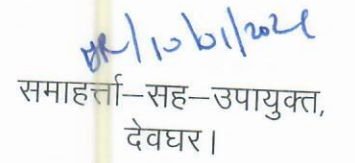 10/01/2024
समाहर्त्ता–सह–उपायुक्त,
देवघर।